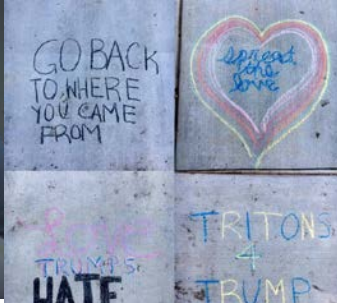 GO BACK
TO WHERE
YOU CAME
FROM
spread
the
love
LOVE
TRUMPS
HATE
TRITONS
4
TRUMP